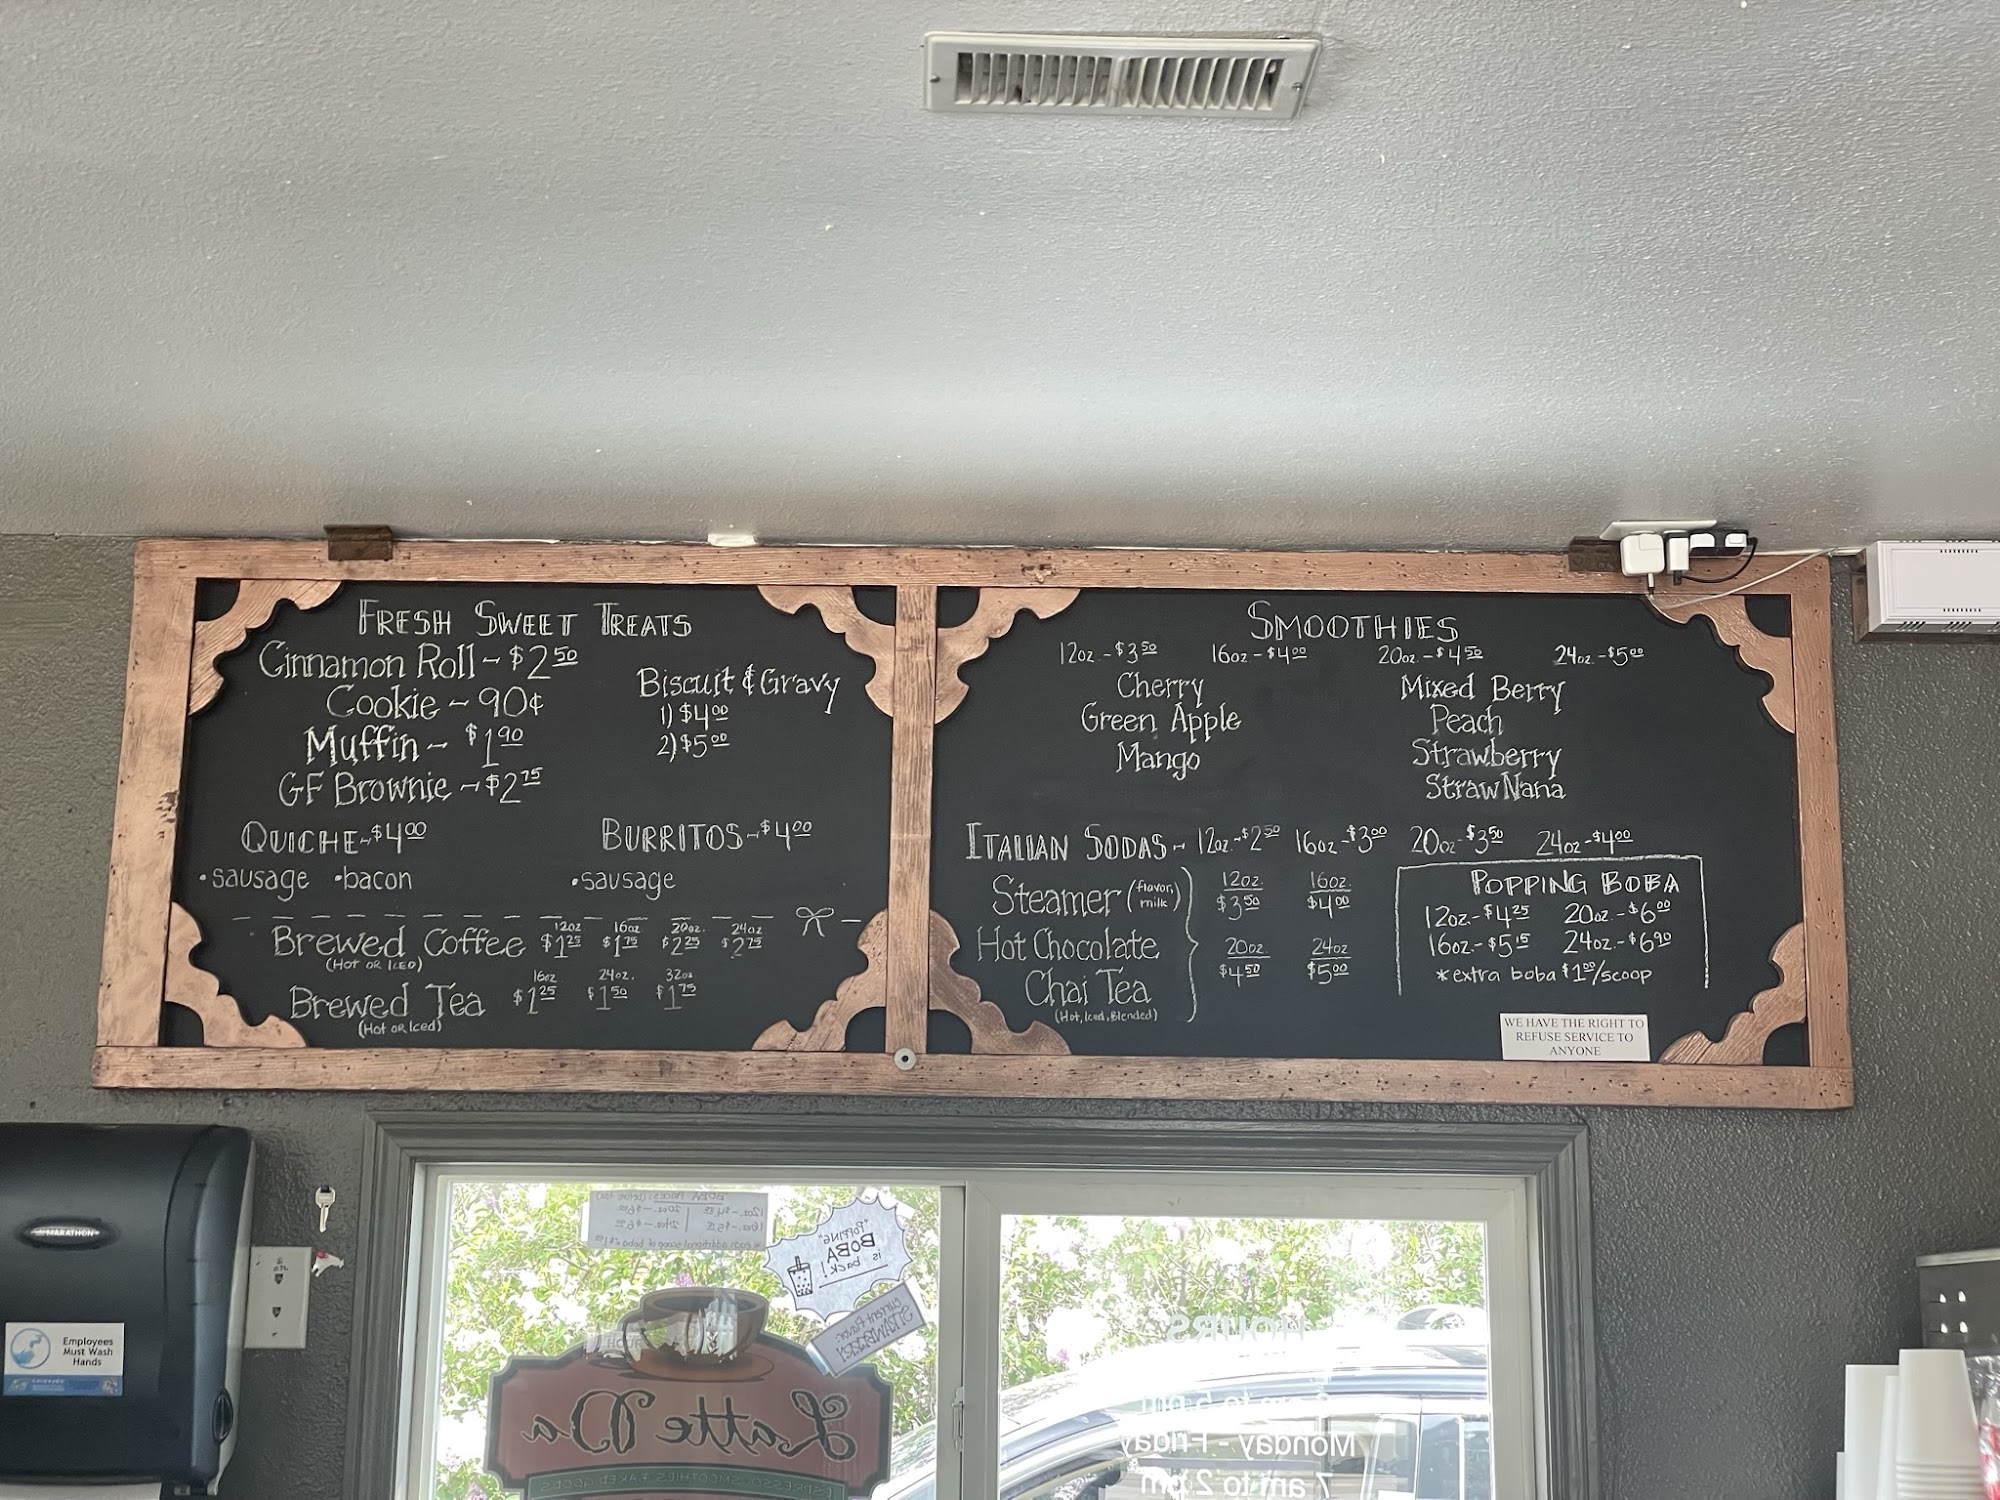 FRESH SWEET TREATS
Cinnamon Roll ~ $2.50
Cookie ~ 90¢
Muffin ~ $1.90
GF Brownie ~ $2.75
Biscuit & Gravy
1) $4.00
2) $5.00
QUICHE ~ $4.00
• sausage • bacon
BURRITOS ~ $4.00
• sausage
Brewed Coffee 12oz $1.25 16oz $1.75 20oz. $2.25 24oz $2.75
(HOT OR ICED)
Brewed Tea 16oz $1.25 24oz. $1.50 32oz $1.75
(Hot or Iced)
SMOOTHIES
12oz. - $3.50 16oz - $4.00 20oz - $4.50 24oz. - $5.00
Cherry
Green Apple
Mango
Mixed Berry
Peach
Strawberry
StrawNana
ITALIAN SODAS ~ 12oz. - $2.50 16oz - $3.00 20oz - $3.50 24oz - $4.00
Steamer (flavor, milk)
Hot Chocolate
Chai Tea
(Hot, Iced, Blended)
12oz. $3.50 16oz. $4.00
20oz $4.50 24oz $5.00
POPPING BOBA
12oz. - $4.25 20oz. - $6.00
16oz. - $5.15 24oz. - $6.90
*extra boba $1.00/scoop
WE HAVE THE RIGHT TO
REFUSE SERVICE TO
ANYONE
MARATHON
Employees
Must Wash
Hands
"POPPING"
BOBA
is
back!
Current Flavor:
STRAWBERRY
Latte Da
HOURS
Monday - Friday
7 am to 2 pm